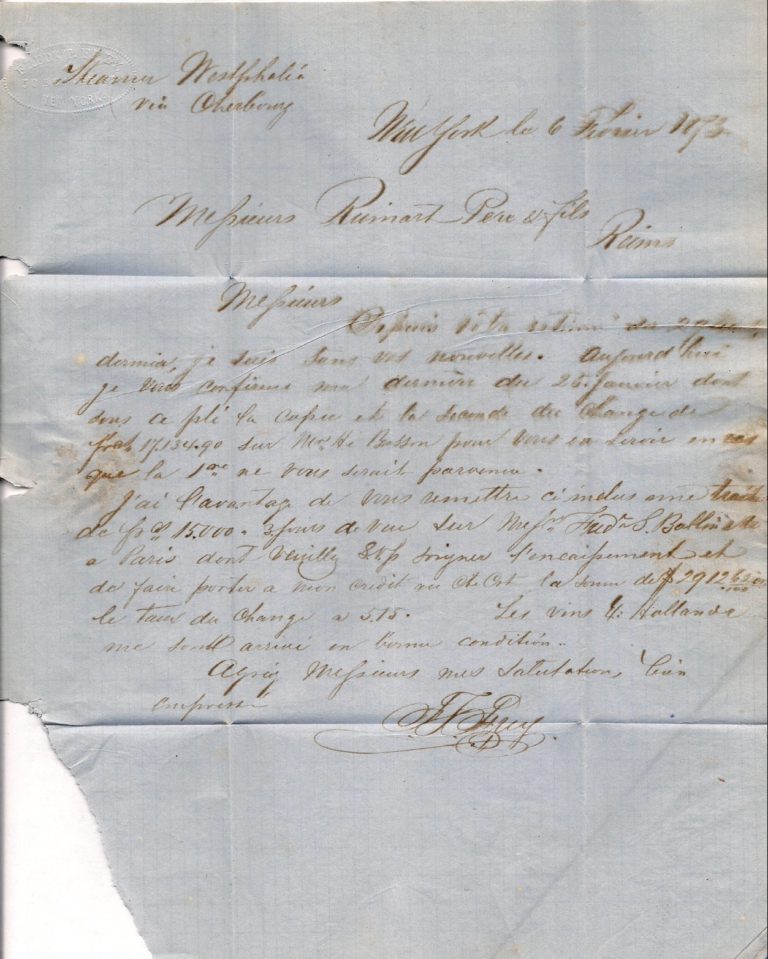 NEW YORK
Steamer Westphalia
via Cherbourg
New York le 6 Février 1873
Messieurs Ruinart Pere & fils
Reims
Messieurs
Depuis des 29
dernier, je suis sans vos nouvelles. Aujourd'hui
je vous confirme ma dernière du 25 Janvier dont
sous ce pli la copie et la seconde du change de
frcs 17,134.90 sur pour vous en servir en cas
que la 1ere ne vous serait parvenue.
J'ai l'avantage de vous remettre ci inclus une traite
de frcs 15.000. 3 jours de vue sur Messrs Fred. S. Ballin & Co
a Paris dont veuillez soigner l'encaissement et
de faire porter a mon crédit au Cte Crt la somme de $ 2912 62/100
le taux du change a 5.15. Les vins Hollande
me sont arrivé en bonne condition.
Agréez Messieurs mes salutations bien
empressé